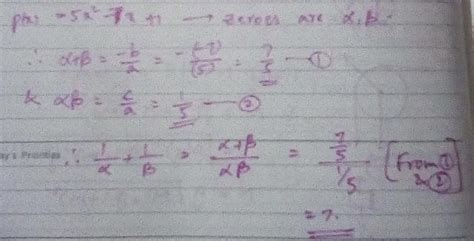 p(x) = 5x² - 7x + 1 → zeroes are α, β.
∴ α+β = -b/a = -(-7)/(5) = 7/5 — ①
& αβ = c/a = 1/5 — ②
∴ 1/α + 1/β = α+β/αβ = 7/5 / 1/5 [from ① & ②]
= 7.